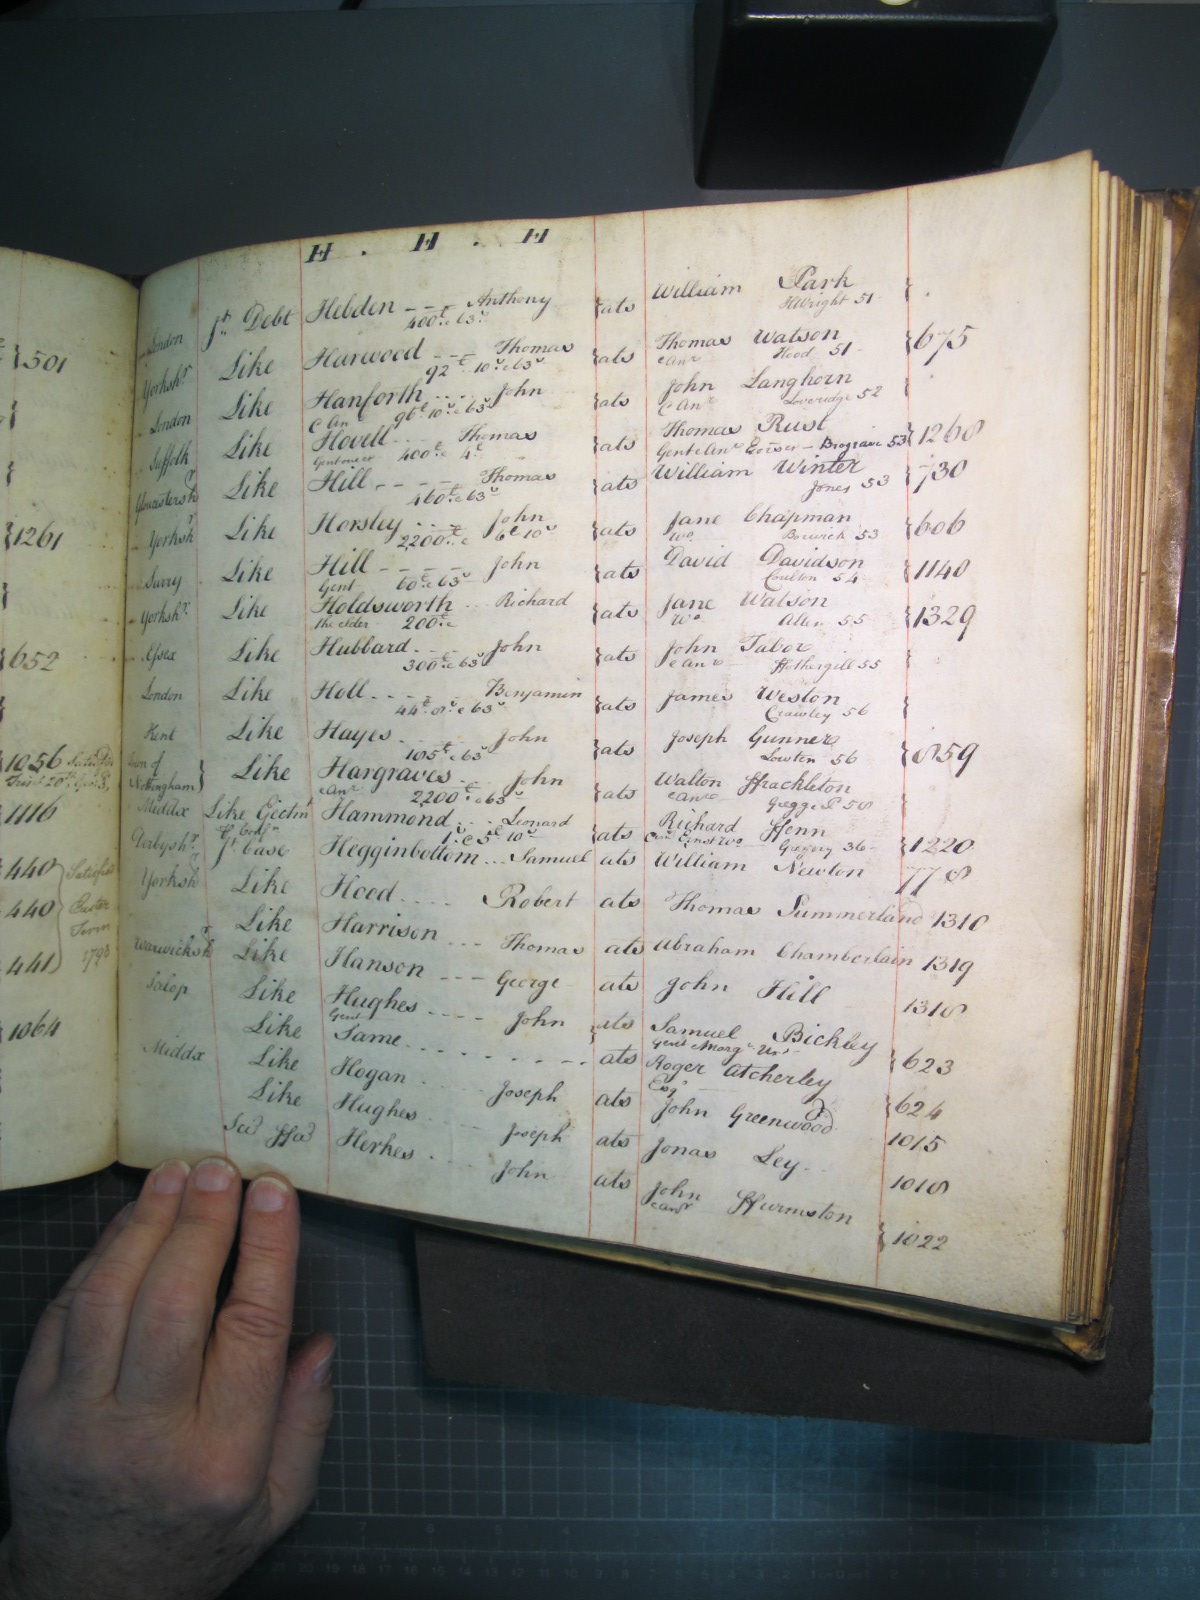 H . H . H
London Jt. Debt Hebden --- Anthony }ats William Park
400£ & 63s HWright 51
Yorkshr. Like Harwood --- Thomas }ats Thomas Watson }675
92£ 10s & 63s & Anr Hood 51
London Like Hanforth .... John }ats John Langhorn
& Anr 96£ 10s & 63s & Anr Loveridge 52
Suffolk Like Hovell ... Thomas }ats Thomas Rust }1268
Gent one &c 400£ & 4£ Gent & Anr - Brograve 53
Gloucestershr Like Hill ---- Thomas }ats William Winter }730
460£ & 63s Jones 53
Yorkshr Like Horsley .... John }ats Jane Chapman }606
2200£ & 6£ 10s Wo. Borwick 53
Surry Like Hill ---- John }ats David Davidson }1140
Gent 60£ & 63s Coulton 54
Yorkshr. Like Holdsworth .. Richard }ats Jane Watson }1329
the elder 200£ & Wo. Allen 55
Essex Like Hubbard ... John }ats John Tabor
300£ & 63s & Anr Ffothergill 55
London Like Holl .... Benjamin }ats James Weston
44£ 8s & 63s Crawley 56
Kent Like Hayes .... John }ats Joseph Gunner }859
105£ & 63s Lowten 56
Town of Nottingham} Like Hargraves ... John }ats Walton Ffrackleton
& Anr 2200£ & 63s & Anr Gregg & P 58
Middx Like Ejectmt Hammond ... Leonard }ats Richard Ffenn }1220
1s & 5£ 10s Gregory 36
Derbyshr. Jt. Case Hegginbottom ... Samuel ats William Newton 778
Yorkshr Like Hoed .... Robert ats Thomas Summerland 1310
Like Harrison --- Thomas ats Abraham Chamberlain 1319
Warwickshr Like Hanson --- George ats John Hill 1318
Salop Like Hughes ---- John }ats Samuel Bickley }623
Gent Gent Marg. Ux
Like Same ........ ats Roger Atcherley }624
Esqr
Middx Like Hogan .... Joseph ats John Greenwood 1015
Like Hughes .... Joseph ats Jonas Ley 1018
Sca Ffa Herkes .... John ats John Ffurmston }1022
& Anr
}1501
}1261
}652
}1056
1116
440
440
441
1064
Satisfied
Easter
Term